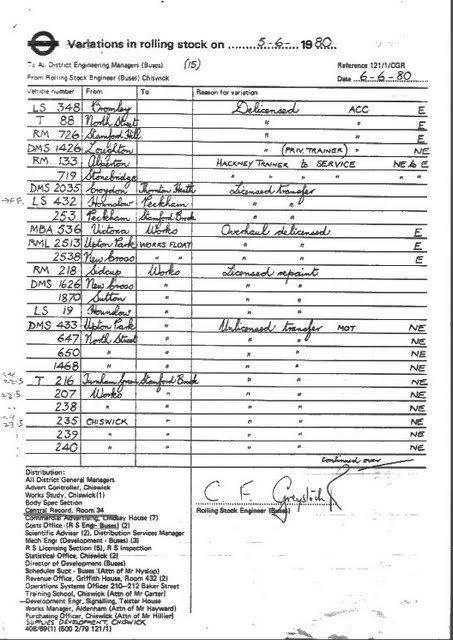 Variations in rolling stock on 5-6- 1980
To All District Engineering Managers (Buses) (15) Reference 121/1/CGR
From Rolling Stock Engineer (Buses) Chiswick Date 6-6-80
Vehicle number From To Reason for variation
LS 348 Bromley Delicensed ACC E
T 88 North Street " " E
RM 726 Stamford Hill " " E
DMS 1426 Loughton " (PRIV. TRAINER) " NE
RM 133 Alperton HACKNEY TRAINER to SERVICE NE to E
719 Stonebridge " " " "
DMS 2035 Croydon Thornton Heath Licensed transfer
→FF. LS 432 Hounslow Peckham " "
253 Peckham Stamford Brook " "
MBA 536 Victoria Works Overhaul delicensed E
RML 2513 Upton Park WORKS FLOAT " " E
2538 New Cross " " " " E
RM 218 Sidcup Works Licensed repaint
DMS 1626 New Cross " " "
1870 Sutton " " "
LS 19 Hounslow " " "
DMS 433 Upton Park " Unlicensed transfer MOT NE
647 North Street " " " NE
650 " " " " NE
1468 " " " " NE
22.5 T 216 Turnham Green Stamford Brook " " NE
22.5 207 Works " " " NE
238 " " " " NE
23.5 235 CHISWICK " " " NE
239 " " " " NE
240 " " " " NE
continued over
Distribution:
All District General Managers
Advert Controller, Chiswick
Works Study, Chiswick(1)
Body Spec Section
Central Record, Room 34
Commercial Advertising, Lindsay House (7)
Costs Office (R S Eng- Buses) (2)
Scientific Adviser (2), Distribution Services Manager
Mech Engr (Development - Buses) (3)
R S Licensing Section (5), R S Inspection
Statistical Office, Chiswick (2)
Director of Development (Buses)
Schedules Supt - Buses (Attn of Mr Hyslop)
Revenue Office, Griffith House, Room 432 (2)
Operations Systems Officer 210-212 Baker Street
Training School, Chiswick (Attn of Mr Carter)
Development Engr, Signalling, Telstar House
Works Manager, Aldenham (Attn of Mr Hayward)
Purchasing Officer, Chiswick (Attn of Mr Hillier)
SUPPLIES DEVELOPMENT, CHISWICK
408/69(1) (500 2/79 121/1)
C. F. Greystock
Rolling Stock Engineer (Buses)